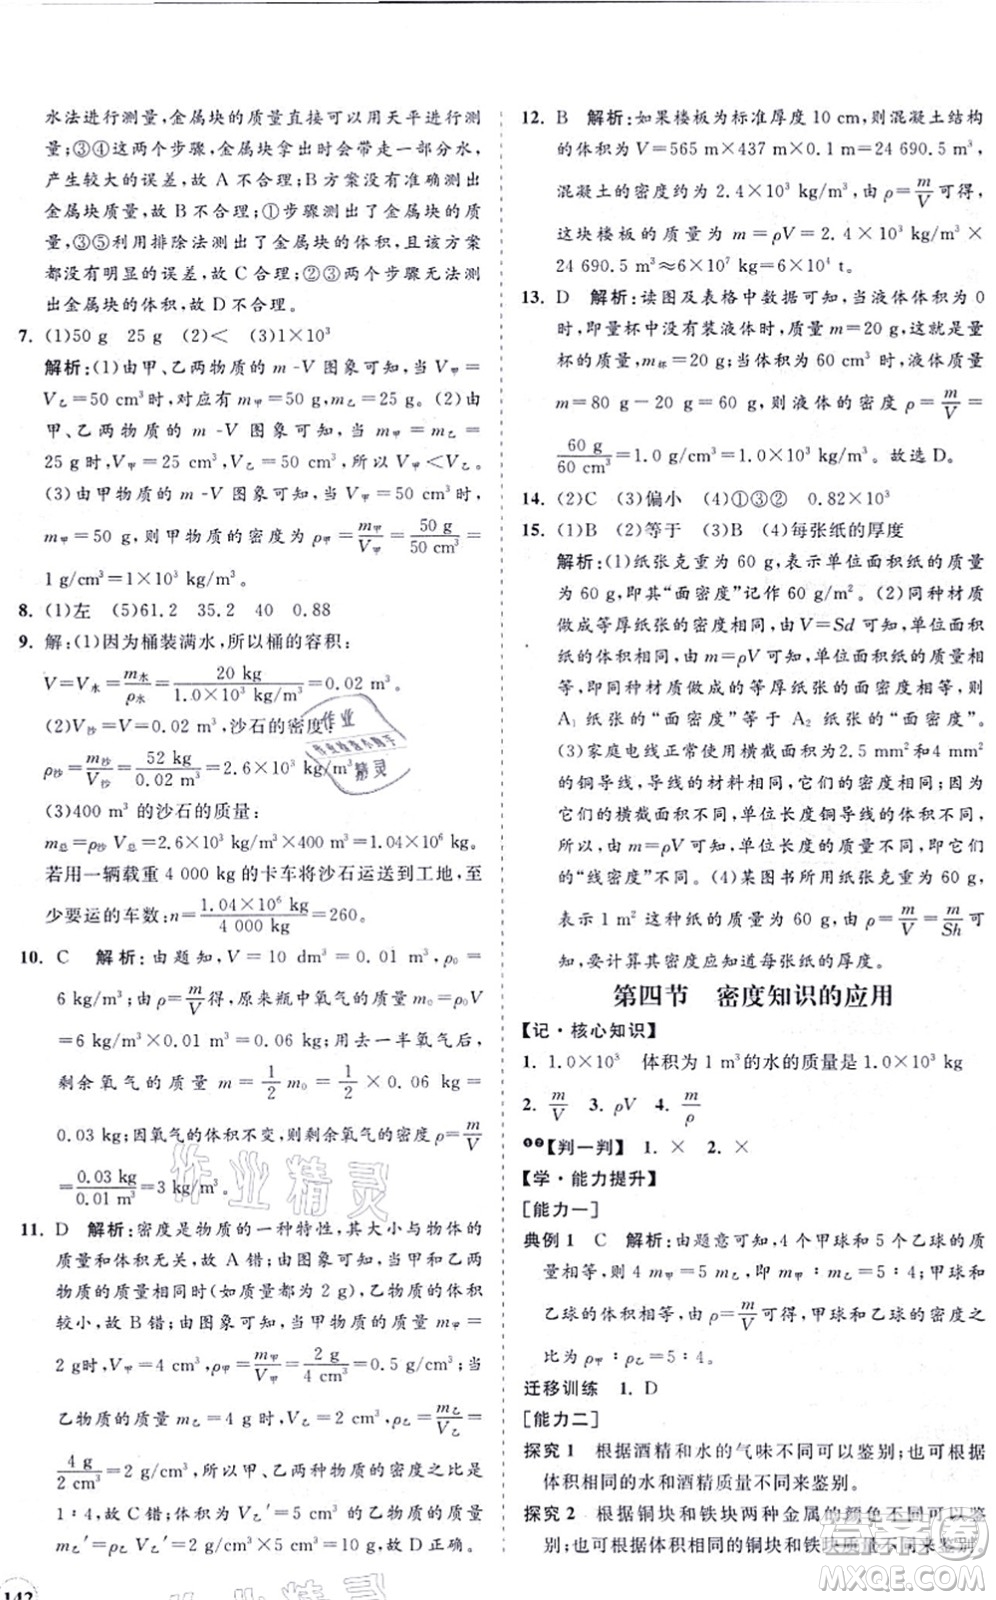 水法进行测量,金属块的质量直接可以用天平进行测
量;③④这两个步骤,金属块出来时会带走一部分水,
产生较大的误差,故 A 不合理;B 方案没有准确测出
金属块质量,故 B 不合理;①步骤测出了金属块的质
量,③⑤利用排除法测出了金属块的体积,且该方案
都没有明显的误差,故 C 合理;②③两个步骤无法测
出金属块的体积,故 D 不合理。
7. (1)50 g 25 g (2)< (3)1×10³
解析:(1)由甲、乙两物质的 m -V 图象可知,当 V甲=
V乙=50 cm³时,对应有 m甲=50 g,m乙=25 g。(2)由
甲、乙两物质的 m -V 图象可知,当 m甲=m乙=
25 g时,V甲=25 cm³,V乙=50 cm³,所以 V甲<V乙。
(3)由甲物质的 m -V 图象可知,当 V甲=50 cm³时,
m甲=50 g,则甲物质的密度为 ρ甲=m甲/V甲=50 g/50 cm³=
1 g/cm³=1×10³ kg/m³。
8. (1)左 (5)61.2 35.2 40 0.88
9. 解:(1)因为桶装满水,所以桶的容积:
V=V水=m水/ρ水=20 kg/1.0×10³ kg/m³=0.02 m³。
(2)V沙=V=0.02 m³,沙石的密度:
ρ沙=m沙/V沙=52 kg/0.02 m³=2.6×10³ kg/m³。
(3)400 m³ 的沙石的质量:
m总=ρ沙 V总=2.6×10³ kg/m³×400 m³=1.04×10⁶ kg,
若用一辆载重 4 000 kg的卡车将沙石运送到工地,至
少要运的车数:n=1.04×10⁶ kg/4 000 kg=260。
10. C 解析:由题知,V=10 dm³=0.01 m³,ρ₀=
6 kg/m³,原来瓶中氧气的质量 m₀=ρ₀V=
6 kg/m³×0.01 m³=0.06 kg。用去一半氧气后,
剩余氧气的质量 m=1/2 m₀=1/2×0.06 kg=
0.03 kg;因氧气的体积不变,则剩余氧气的密度 ρ=m/V
=0.03 kg/0.01 m³=3 kg/m³。
11. D 解析:密度是物质的一种特性,其大小与物体的
质量和体积无关,故 A 错;由图象可知,甲和乙两
物质的质量相同时(如质量都为 2 g),乙物质的体积
较小,故 B 错误;由图象可知,当甲物质的质量 m甲=
2 g时,V甲=4 cm³,ρ甲=m甲/V甲=2 g/4 cm³=0.5 g/cm³,当
乙物质的质量 m乙=4 g 时,V乙=2 cm³,ρ乙=m乙/V乙=
4 g/2 cm³=2 g/cm³,甲、乙两种物质的密度之比是
1∶4,故 C 错;体积为 V乙′=5 cm³ 的乙物质的质量
m乙′=ρ乙V乙′=2 g/cm³×5 cm³=10 g,故 D 正确。
142
12. B 解析:如果楼板为标准厚度 10 cm,混凝土结构
的体积为 V=565 m×437 m×0.1 m=24 690.5 m³,
混凝土的密度约为 2.4×10³ kg/m³,由 ρ=m/V 可得,
这块楼板的质量为 m=ρV=2.4×10³ kg/m³×
24 690.5 m³≈6×10⁷ kg=6×10⁴ t。
13. D 解析:读图及表格中数据可知,当液体体积为 0
时,即量杯中没有装液体时,质量为 m=20 g,就是量
杯的质量,m杯=20 g;当体积为 60 cm³ 时,液体质量
m=80 g-20 g=60 g,则液体的密度 ρ=m/V=
60 g/60 cm³=1.0 g/cm³=1.0×10³ kg/m³。故选 D。
14. (2)C (3)偏小 (4)①③② 0.82×10³
15. (1)B (2)等于 (3)B (4)每张纸的厚度
解析:(1)纸张克重为 60 g,表示单位面积纸的质量
为 60 g,其“面密度”记作 60 g/m²。(2)相同材料
做成等厚纸张的密度相同,由 V=Sd 可知,单位面积
纸的体积相同,由 m=ρV 可知,单位面积的质量相
等,即同种材质做成的等厚纸张的“面密度”相等,则
A₁ 纸张的“面密度”等于 A₂ 纸张的“面密度”。
(3)家庭电线一般使用横截面积为2.5 mm²和4 mm²
的铜导线,导线的材料相同,它们的密度相同,但由于
它们的横截面积不同,单位长度铜导线的体积不同,
所以,由 m=ρV 可知,单位长度的质量不同,即它们
的“线密度”不同。(4)某图书所用纸张克重为 60 g,
则表示 1 m² 这种纸的质量为 60 g,由 ρ=m/V=m/Sh可
知,要计算其密度应知道每张纸的厚度。
第四节 密度知识的应用
【记·核心知识】
1. 1.0×10³ 体积为 1 m³的水的质量是 1.0×10³ kg
2. m/V 3. ρV 4. m/ρ
【判一判】 1. × 2. ×
【学·能力提升】
[能力一]
典例 1 C 解析:由题意可知,4 个甲球和 5 个乙球的质
量相等,即 4 m甲=5 m乙,即 m甲∶m乙=5∶4;甲球和
乙球的体积相等,由 ρ=m/V可得,甲球与乙球的密度之
比为 ρ甲∶ρ乙=5∶4。
迁移训练 1. D
[能力二]
探究 1 根据酒精和水的气味不同可以鉴别;也可根据
体积相同的水和酒精质量不同来鉴别。
探究 2 根据铜块和铁块两种金属的颜色不同可以鉴
别;也可根据体积相同的铜块和铁块质量不同来鉴别。
作业
作业检查小助手
精灵
作业精灵
作业精灵
答案圈
MXQE.COM